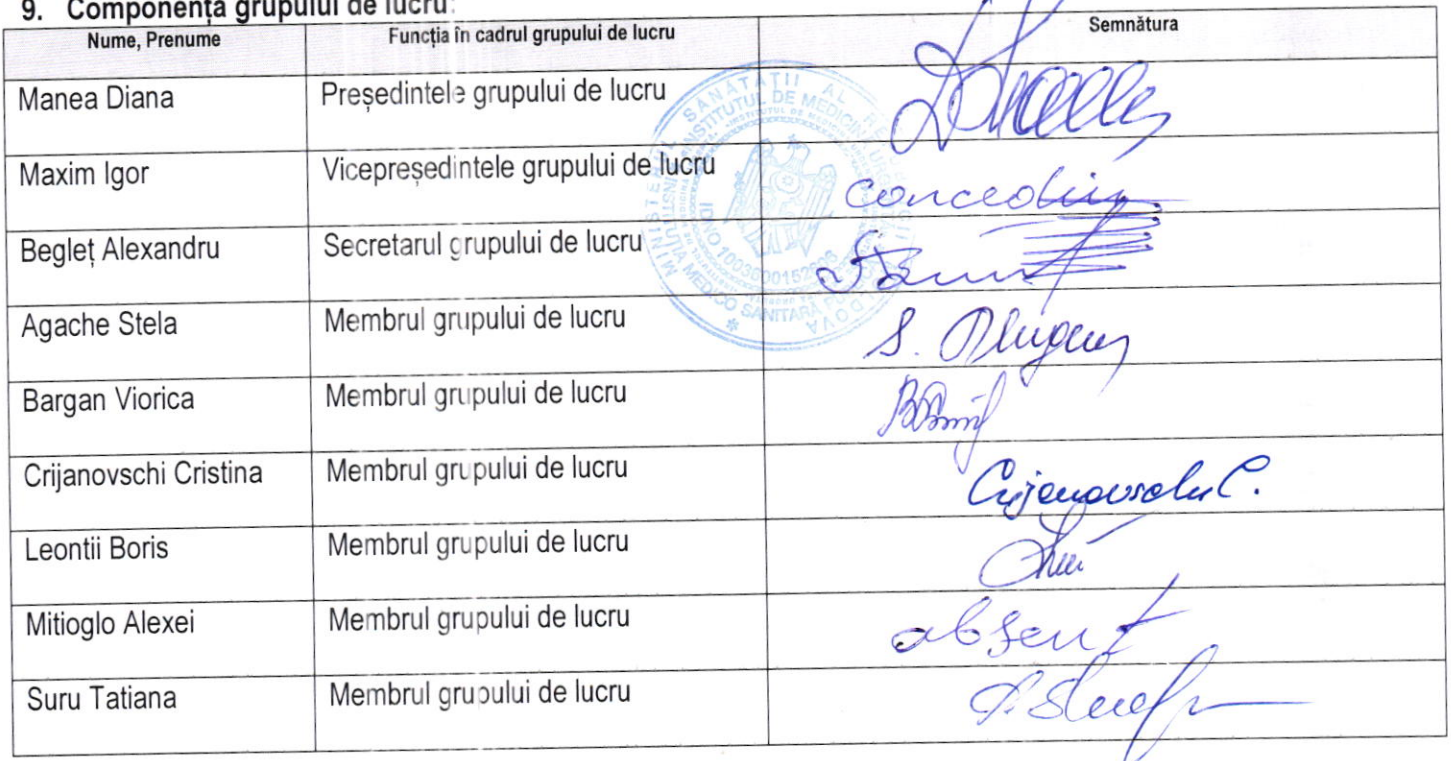 9. Componența grupului de lucru:
Nume, Prenume Funcția în cadrul grupului de lucru Semnătura
Manea Diana Președintele grupului de lucru
Maxim Igor Vicepreședintele grupului de lucru concediu
Begleț Alexandru Secretarul grupului de lucru
Agache Stela Membrul grupului de lucru S.
Bargan Viorica Membrul grupului de lucru
Crijanovschi Cristina Membrul grupului de lucru Crijanovschi C.
Leontii Boris Membrul grupului de lucru
Mitioglo Alexei Membrul grupului de lucru absent
Suru Tatiana Membrul grupului de lucru